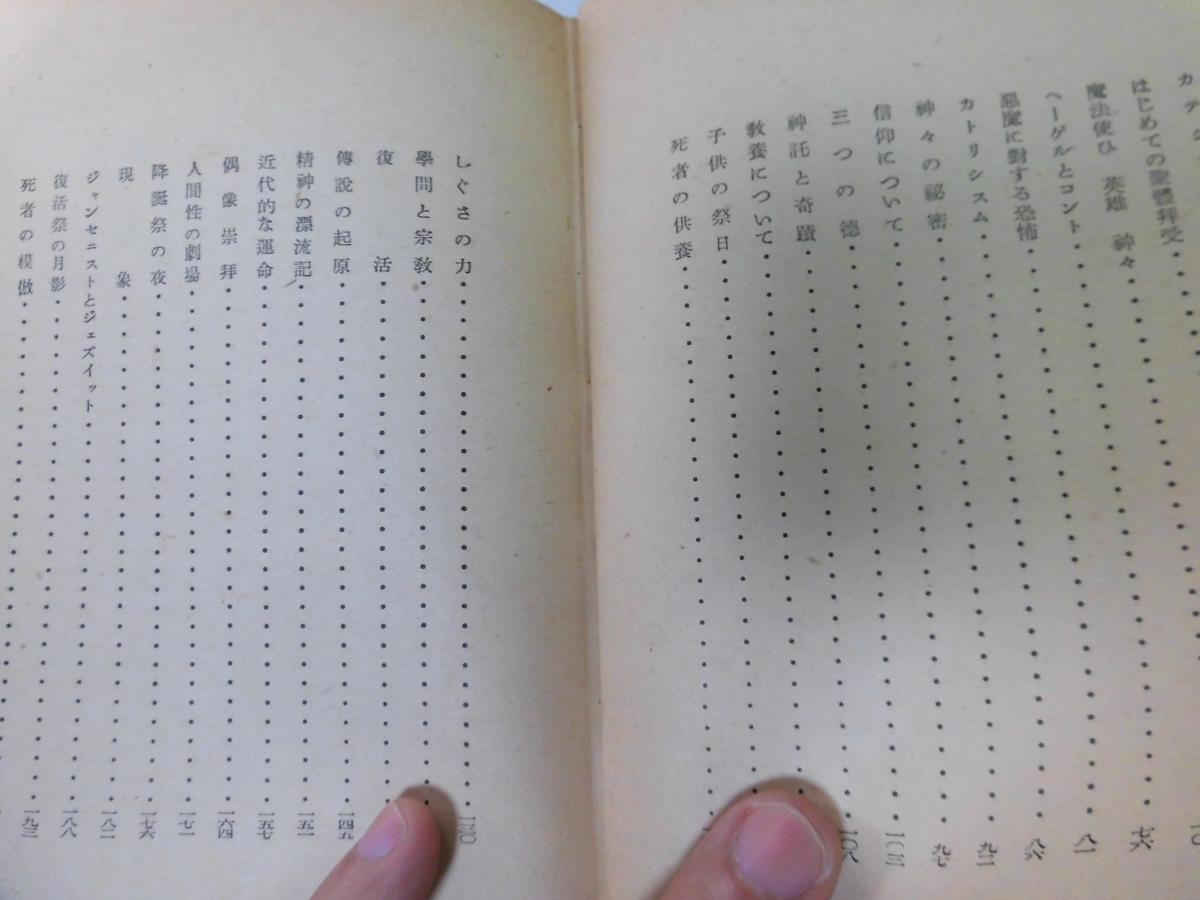 はじめての聖體拝受
魔法使ひ 英雄 神々
ヘーゲルとコント・・・・・・・・・・・・・・・七六
惡魔に對する恐怖・・・・・・・・・・・・・・・八一
カトリシスム・・・・・・・・・・・・・・・八六
神々の秘密・・・・・・・・・・・・・・・九二
信仰について・・・・・・・・・・・・・・・九七
三つの德・・・・・・・・・・・・・・・一〇三
神託と奇蹟・・・・・・・・・・・・・・・一〇八
敎養について・・・・・・・・・・・・・・・
子供の祭日・・・・・・・・・・・・・・・
死者の供養・・・・・・・・・・・・・・・
しぐさの力・・・・・・・・・・・・・・・一三〇
學問と宗敎・・・・・・・・・・・・・・・
復活・・・・・・・・・・・・・・・
傳說の起原・・・・・・・・・・・・・・・一四五
精神の漂流記・・・・・・・・・・・・・・・一五一
近代的な運命・・・・・・・・・・・・・・・一五七
偶像崇拜・・・・・・・・・・・・・・・一六四
人間性の劇場・・・・・・・・・・・・・・・一七一
降誕祭の夜・・・・・・・・・・・・・・・一七六
現象・・・・・・・・・・・・・・・一八二
ジャンセニストとジェズイット・・・・・・・・・・・・・・・一八八
復活祭の月影・・・・・・・・・・・・・・・一九三
死者の模倣・・・・・・・・・・・・・・・